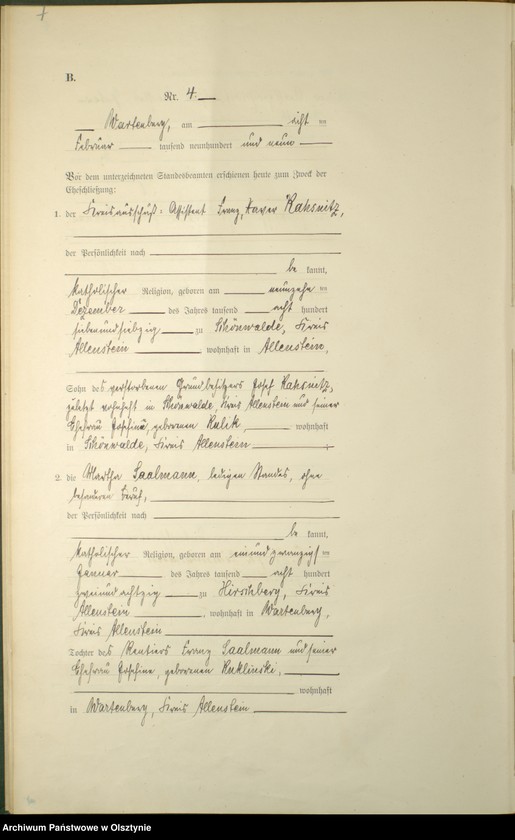 B.
Nr. 4.
Wartenberg, am acht ten
Februar tausend neunhundert und neun
Vor dem unterzeichneten Standesbeamten erschienen heute zum Zweck der
Eheschließung:
1. der Kreisausschuß-Assistent Franz, Xaver Kahsnitz,
der Persönlichkeit nach
be kannt,
katholischer Religion, geboren am neunzehn ten
Dezember des Jahres tausend acht hundert
siebenundsiebzig zu Schönwalde, Kreis
Allenstein wohnhaft in Allenstein,
Sohn des verstorbenen Grundbesitzers Josef Kahsnitz,
zuletzt wohnhaft in Schönwalde, Kreis Allenstein und seiner
Ehefrau Josephine, geborenen Kulik, wohnhaft
in Schönwalde, Kreis Allenstein
2. die Martha Saalmann, ledigen Standes, ohne
besonderen Beruf,
der Persönlichkeit nach
be kannt,
katholischer Religion, geboren am einundzwanzigs ten
Januar des Jahres tausend acht hundert
zweiundachtzig zu Hirschberg, Kreis
Allenstein, wohnhaft in Wartenberg,
Kreis Allenstein
Tochter des Rentiers Franz Saalmann und seiner
Ehefrau Josephine, geborenen Kuklinski,
wohnhaft
in Wartenberg, Kreis Allenstein
Archiwum Państwowe w Olsztynie